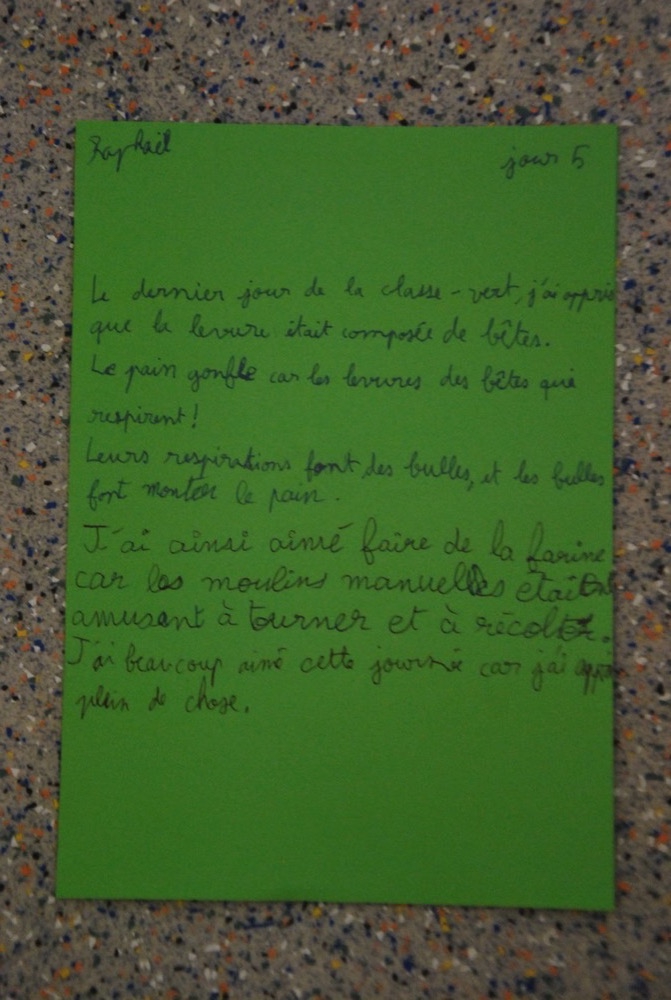 Raphaël
jour 5
Le dernier jour de la classe-vert, j'ai appris
que la levure était composée de bêtes.
Le pain gonfle car les levures des bêtes qui
respirent!
Leurs respirations font des bulles, et les bulles
font monter le pain.
J'ai ainsi aimé faire de la farine
car les moulins manuelles etaient
amusant à tourner et à récolter.
J'ai beaucoup aimé cette journée car j'ai appris
plein de chose.